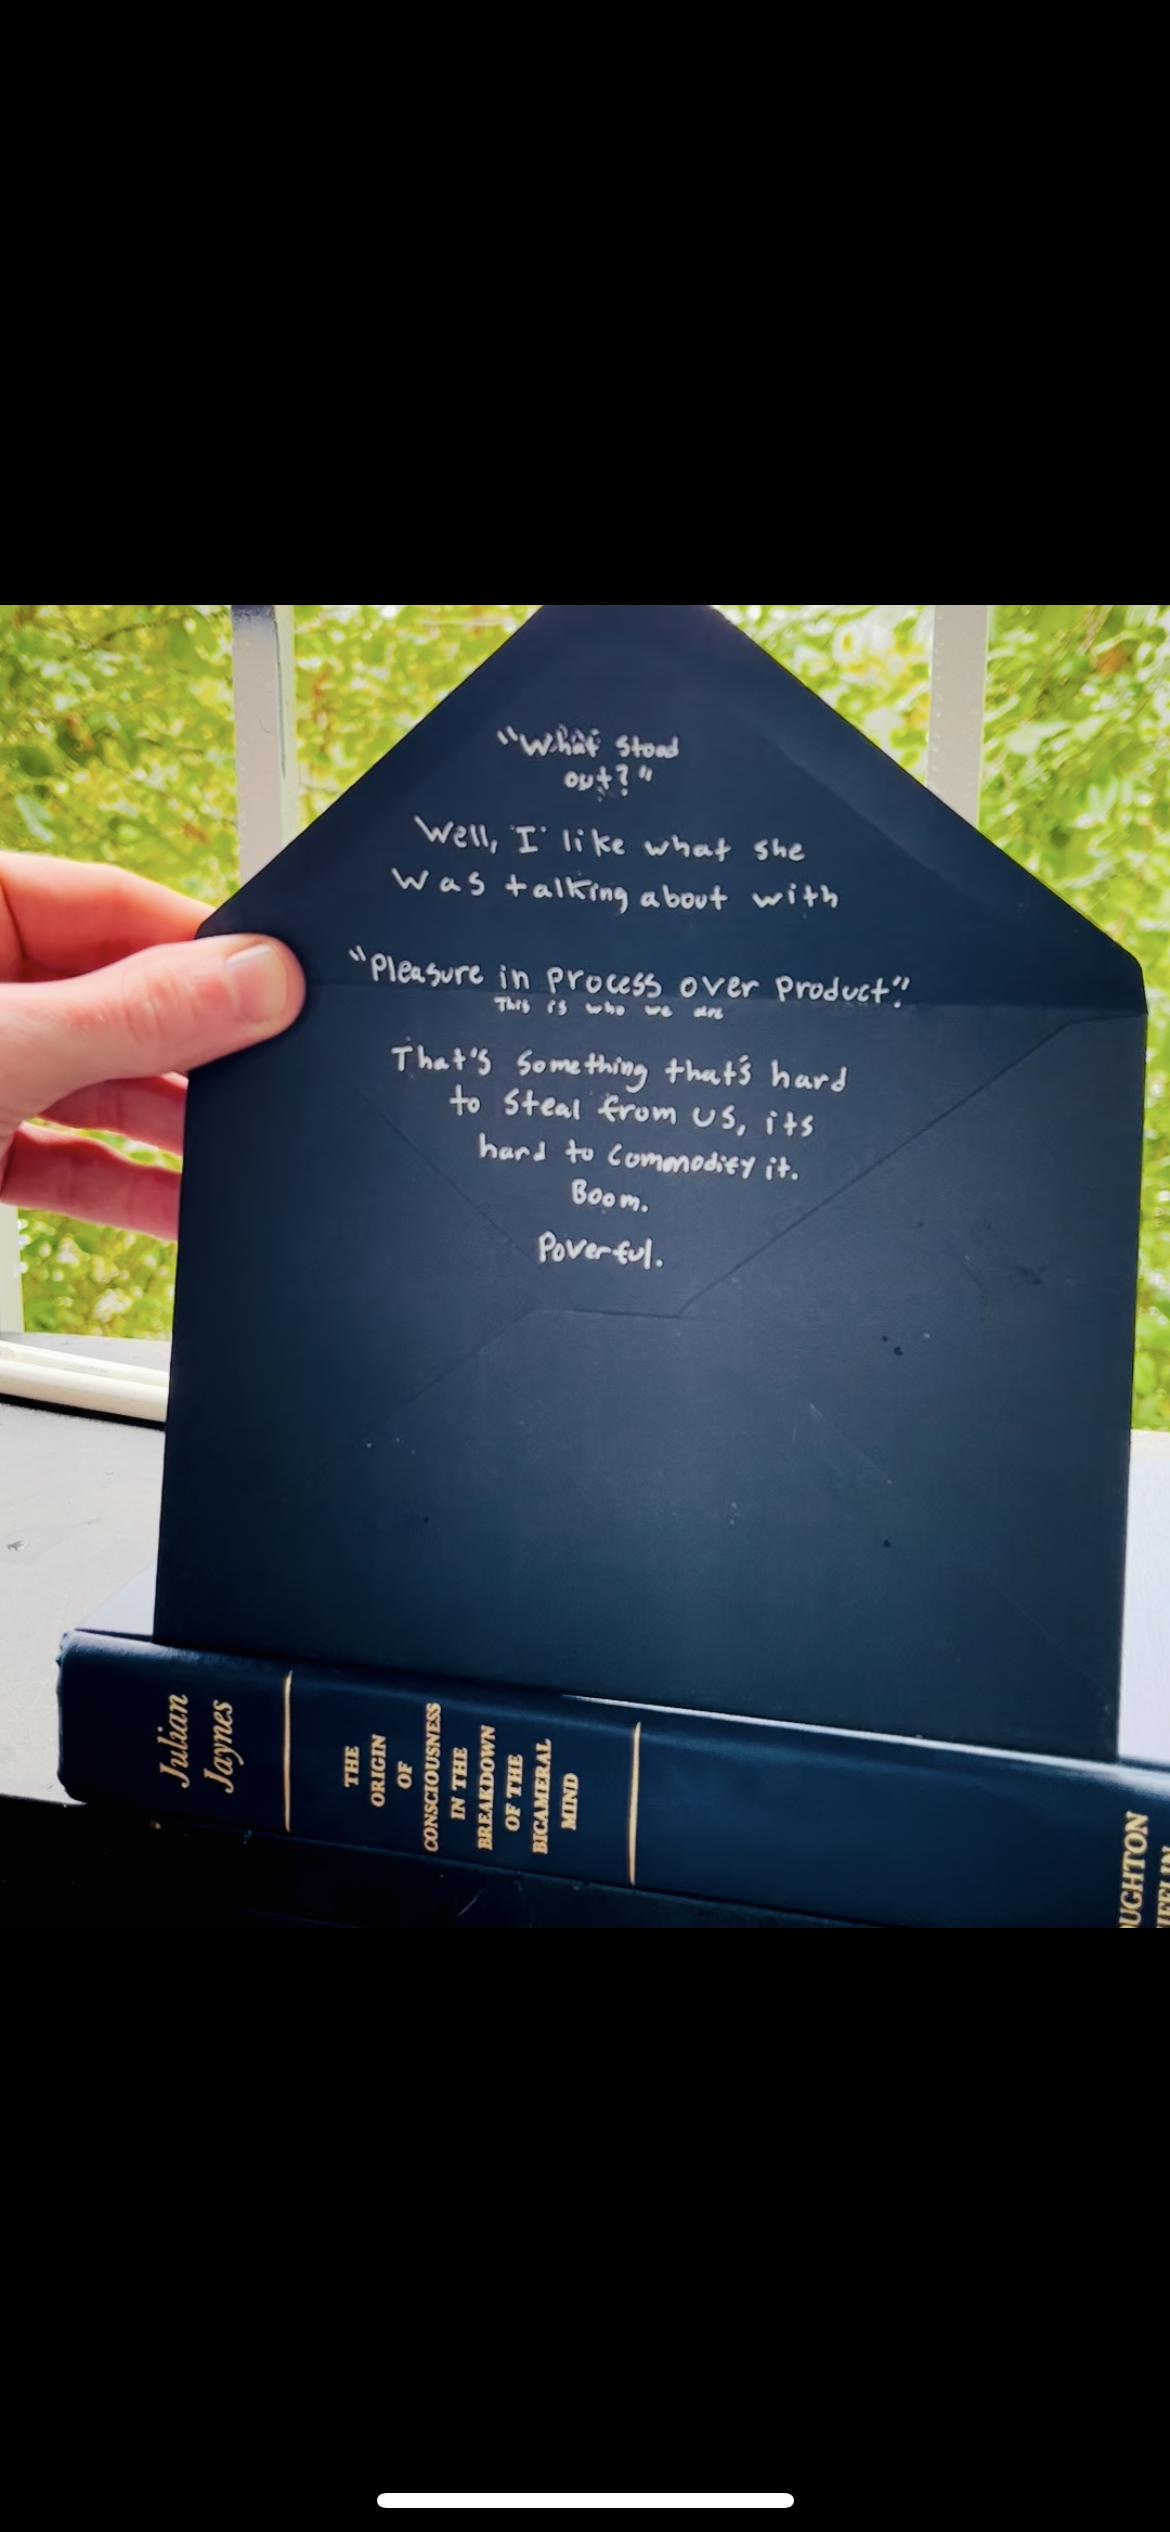 "What stood
out?"
Well, I like what she
was talking about with
"Pleasure in process over product".
This is who we are
That's something that's hard
to steal from us, its
hard to commodify it.
Boom.
Poverful.
Julian
Jaynes
THE
ORIGIN
OF
CONSCIOUSNESS
IN THE
BREAKDOWN
OF THE
BICAMERAL
MIND